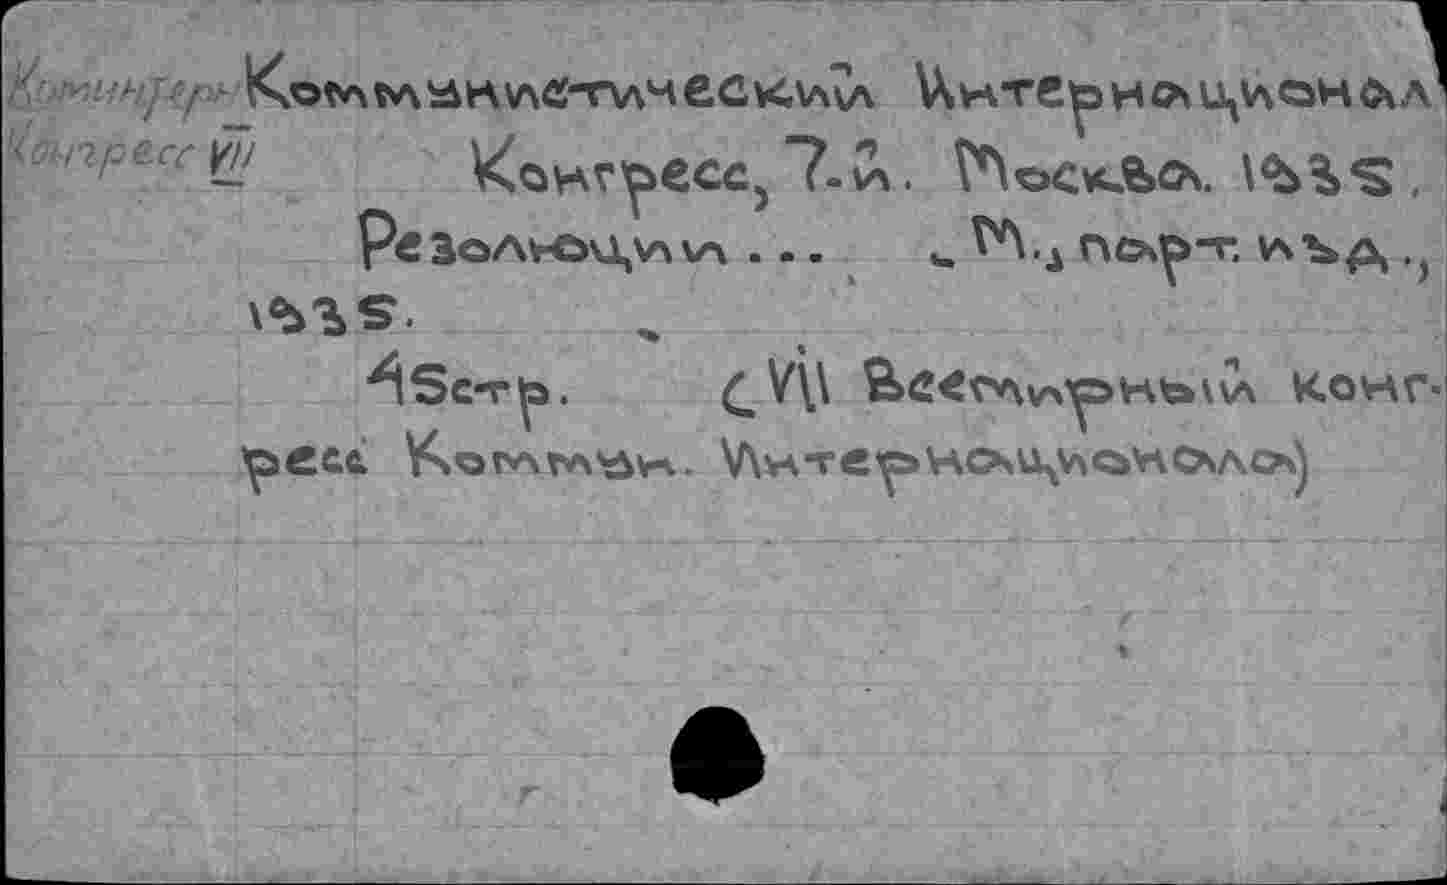 Коминтерн Коммунистический Интернационал
Конгресс VII Конгресс, 7-й. Москва. 1935.
Резолюции ... М., парт. изд.,
1935.
45стр. (VII Всемирный конг-
ресс Коммун. Интернационала)